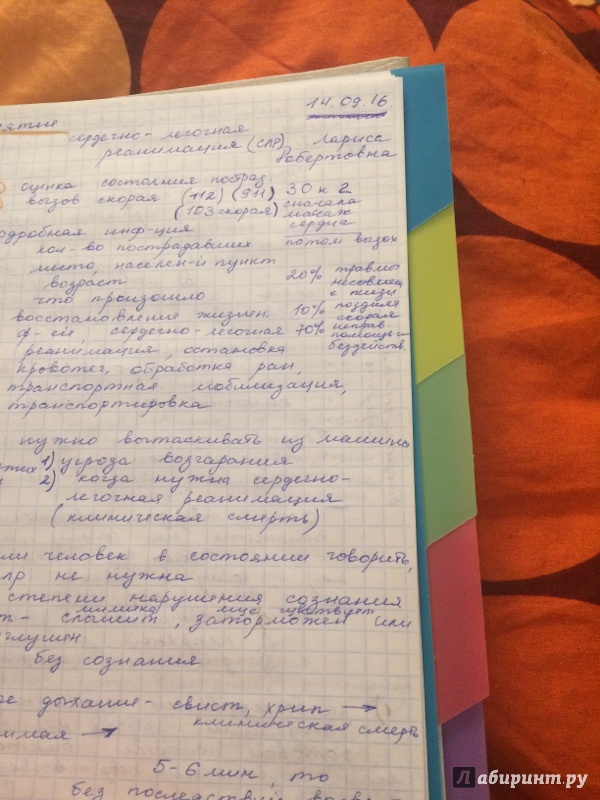 14.09.16.
ятие
сердечно-легочная
реанимация (СЛР) Лариса
Робертовна
оценка состояния пострад.
вызов скорая (112) (911) 30 к 2
(103 скорая) сначала
массаж
сердца
одробная инф-ция
кол-во пострадавших потом вдох
место, населен-й пункт
возраст 20% травмы
несовмещ
с жизн
что произошло
восстановление жизнен. 10% поздняя
скорая
ф-ей, сердечно-легочная 70% неправ.
помощь и
бездейств.
реанимация, остановка
кровотеч, обработка ран,
транспортная мобилизация,
транспортировка
нужно вытаскивать из машины
1) угроза возгарания
2) когда нужна сердечно-
легочная реанимация
(клиническая смерть)
ли человек в состоянии говорить,
лр не нужна
степени нарушения сознания
мимика еще
т- слышит, заторможен или
глушен
без сознания
ые дыхание- свист, хрип →
клиническая смерть
имая →
5-6 мин, то
без последствий
Лабиринт.ру